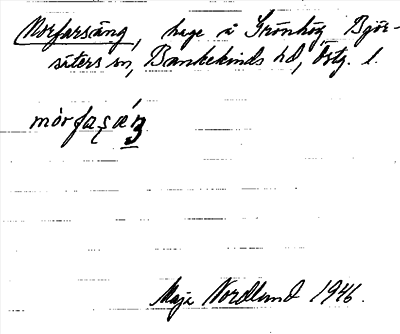 Morfarsäng, hage å Grönhög Björ-
säters sn, Bankekinds hd, Östg. l.
mòrfaṣǽŋ
Maja Nordlund 1946.